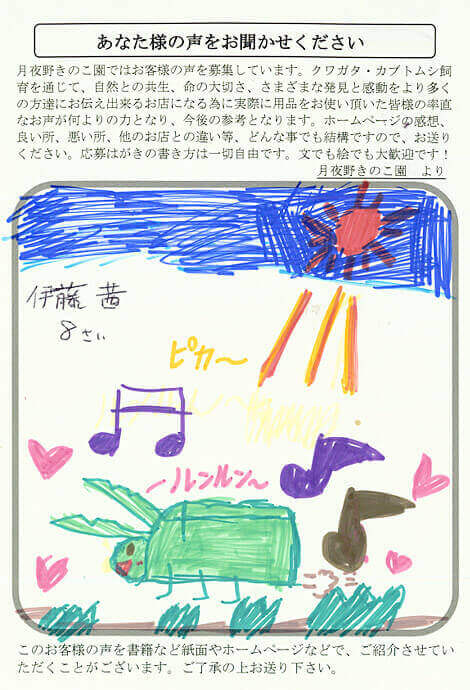 あなた様の声をお聞かせください
月夜野きのこ園ではお客様の声を募集しています。クワガタ・カブトムシ飼
育を通じて、自然との共生、命の大切さ、さまざまな発見と感動をより多く
の方達にお伝え出来るお店になる為に実際に用品をお使い頂いた皆様の率直
なお声が何よりの力となり、今後の参考となります。ホームページの感想、
良い所、悪い所、他のお店との違い等、どんな事でも結構ですので、お送り
ください。応募はがきの書き方は一切自由です。文でも絵でも大歓迎です！
月夜野きのこ園　より
伊藤 茜
8さい
ピカ〜
ルンルン〜
このお客様の声を書籍など紙面やホームページなどで、ご紹介させてい
ただくことがございます。ご了承の上お送り下さい。